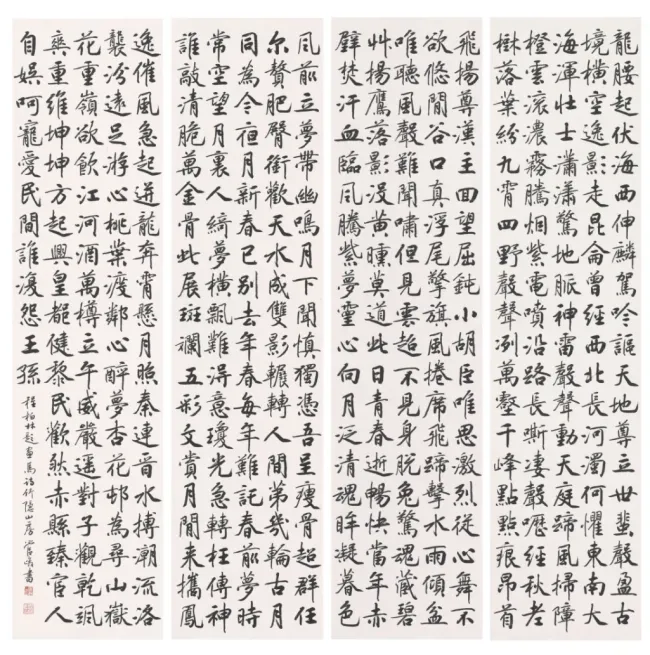 龍腰起伏海西伸麟駕吟謳天地尊立世蜚聲盈古
境橫空逸影走昆侖曾經西北長河濁何懼東南大
海渾壯士瀟瀟驚地脈神雷聲聲動天庭蹄風掃障
橙雲滾濃霧騰烟紫電噴沿路長嘶淒聲嚦經秋老
樹落葉紛九霄四野聲聲冽萬壑千峰點點痕昂首
飛揚尊漢主回望屈鈍小胡臣唯思激烈從心舞不
欲悠閒谷口真浮尾擎旗風捲席飛蹄擊水雨傾盆
唯聽風聲難聞嘯但見雲起不見身脫兔驚魂藏碧
艸揚鷹落影沒黃曛莫道此日青春逝暢快當年赤
壁焚汗血臨風騰紫夢靈心向月泛清魂眸凝暮色
風前立夢帶幽鳴月下聞慎獨憑吾呈瘦骨超群任
尔贅肥臀銜歡天水成雙影輾轉人間第幾輪古月
同為今夜月新春已別去年春每年難託春前夢時
常空望月裏人綺夢橫飄難得意瓊光急轉枉傳神
誰敲清脆萬金骨此展斑斕五彩文賞月閒來攜鳳
逸催風急起迸龍奔霄懸月照秦連晉水搏潮流洛
襲汾遠足游心桃葉渡鄰心醉夢杏花邨為尋山嶽
花重嶺欲飲江河酒萬樽立午威嚴遥對子觀乾颯
爽重維坤坤方起興皇都健黎民歡然赤縣臻官人
自娛呵寵愛民間誰復怨王孫
程柏林題畫馬詩竹隱山房書